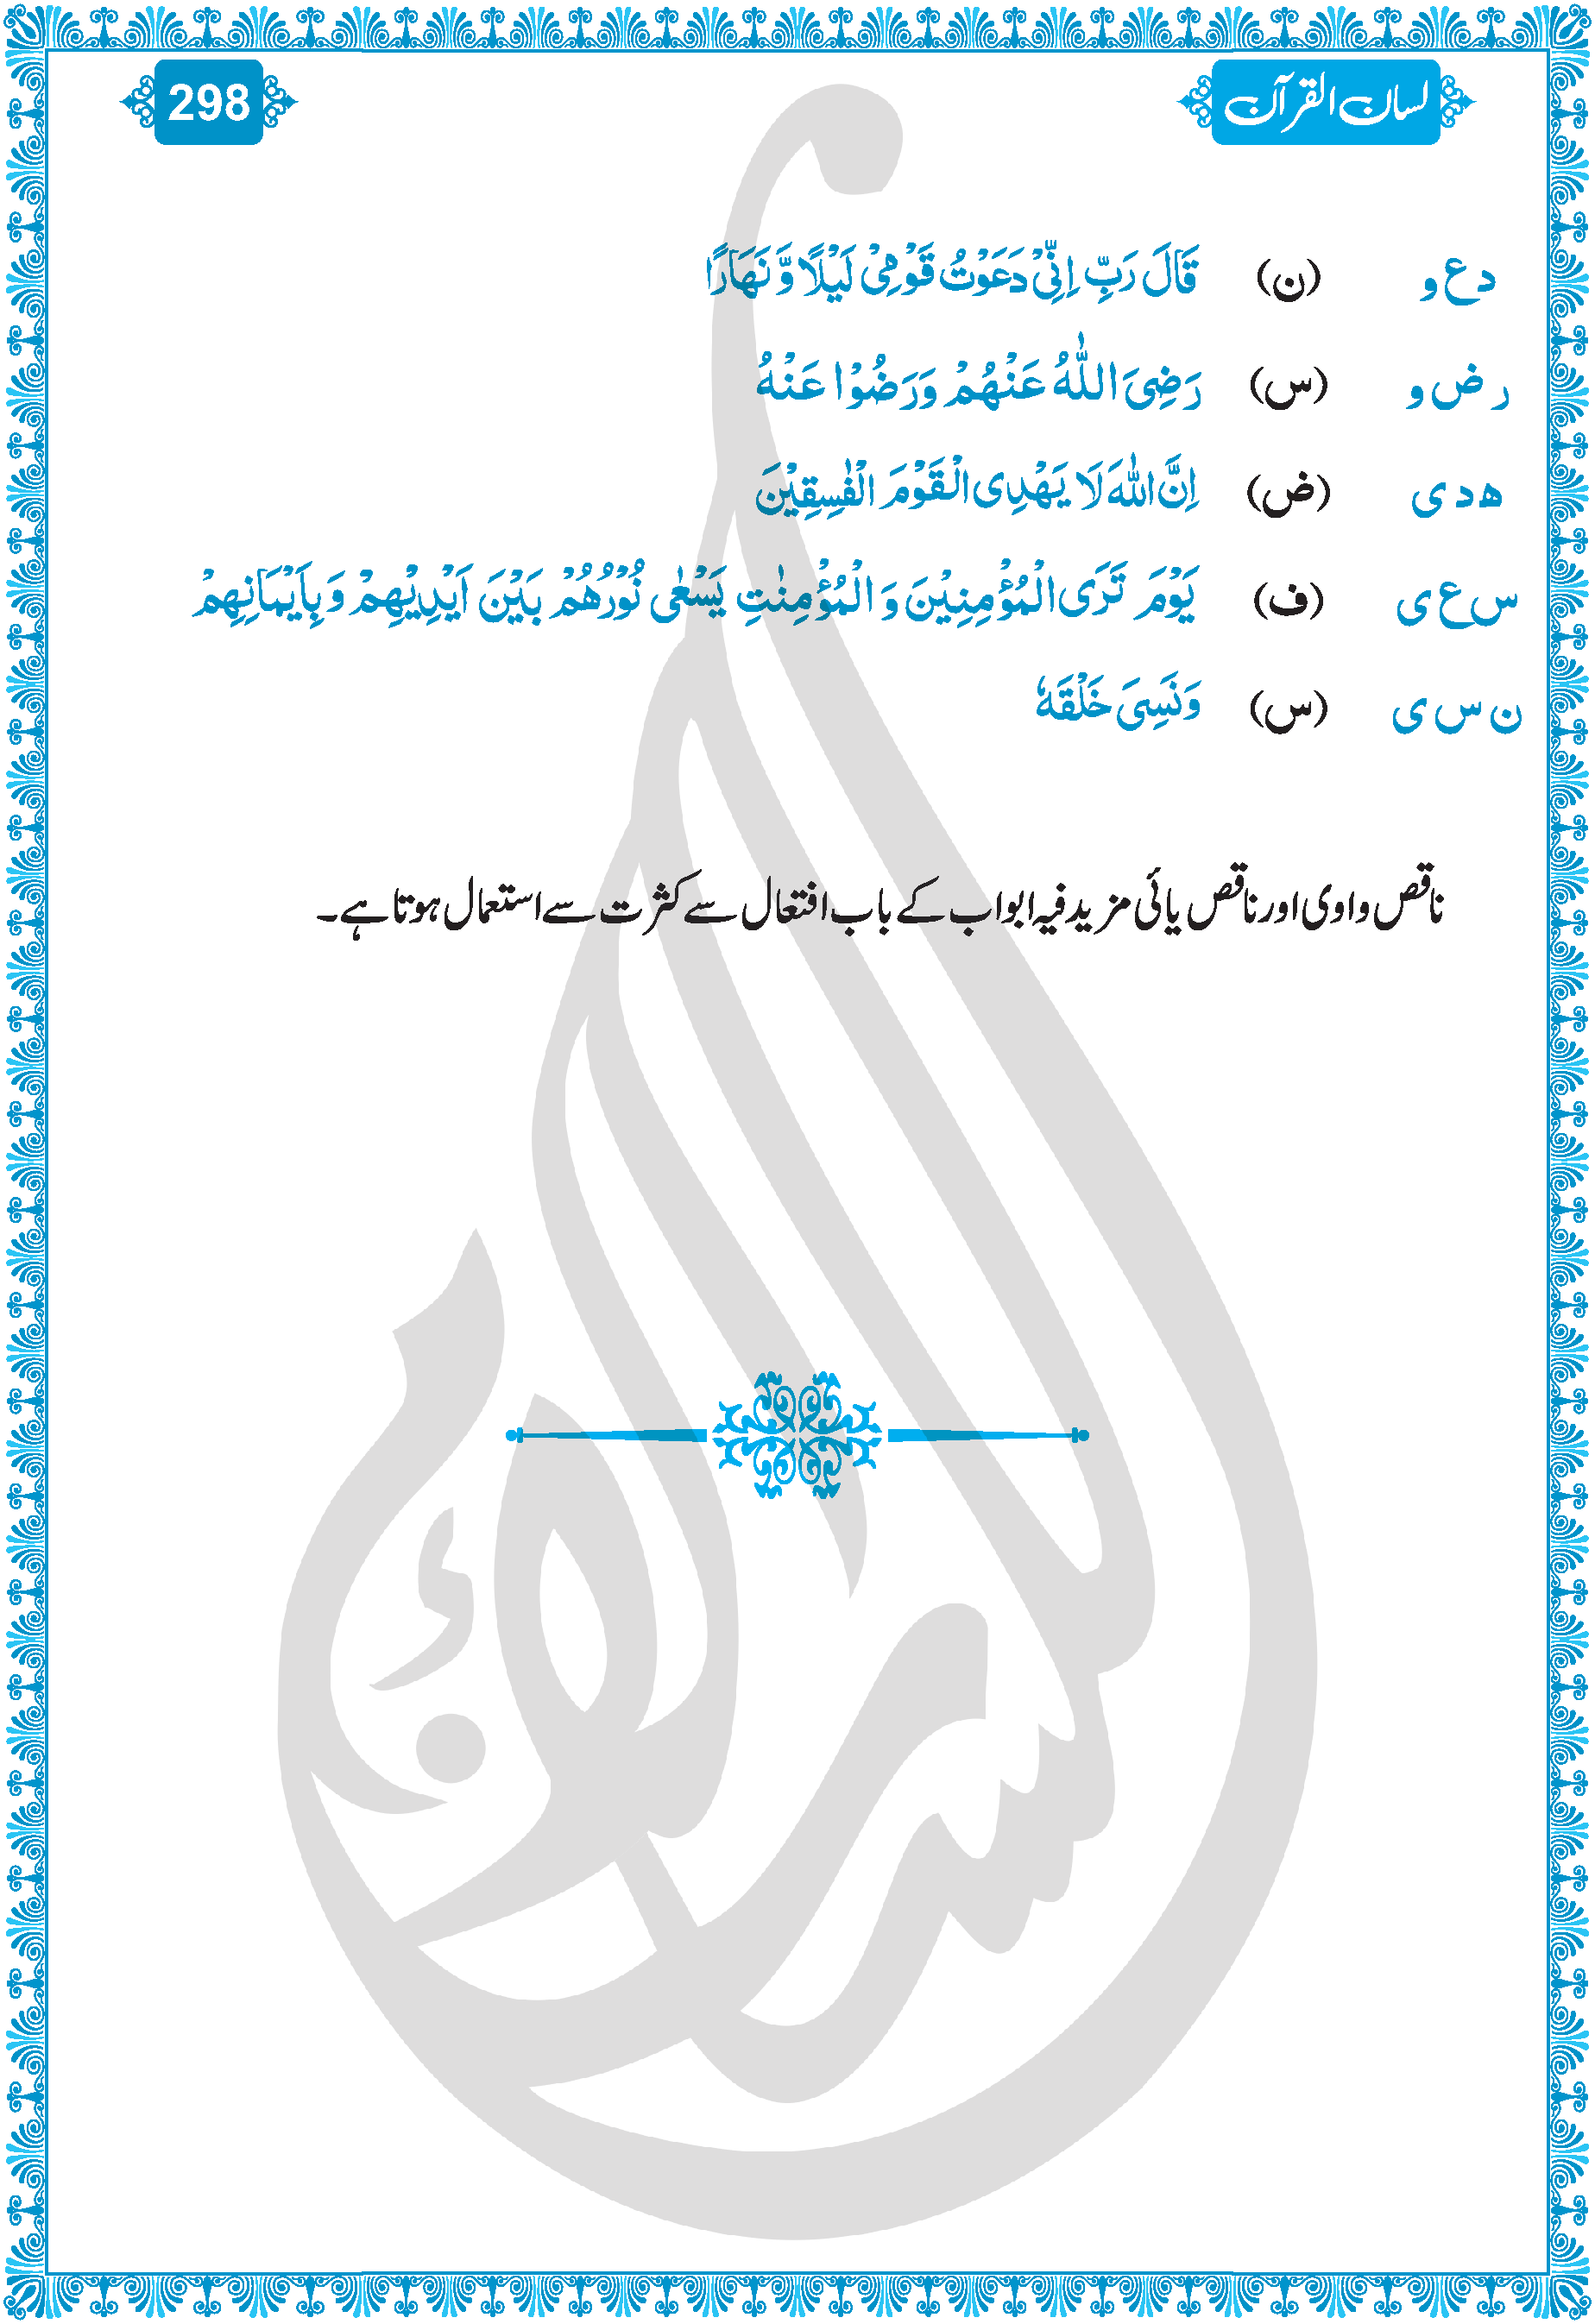 لسان القرآن 298
د ع و (ن) قَالَ رَبِّ اِنِّیْ دَعَوْتُ قَوْمِیْ لَیْلًا وَّ نَهَارًا
ر ض و (س) رَضِیَ اللّٰهُ عَنْهُمْ وَرَضُوْا عَنْهُ
ه د ی (ض) اِنَّ اللّٰهَ لَا یَهْدِی الْقَوْمَ الْفٰسِقِیْنَ
س ع ی (ف) یَوْمَ تَرَی الْمُؤْمِنِیْنَ وَ الْمُؤْمِنٰتِ یَسْعٰی نُوْرُهُمْ بَیْنَ اَیْدِیْهِمْ وَ بِاَیْمَانِهِمْ
ن س ی (س) وَنَسِیَ خَلْقَهٗ
ناقص واوی اور ناقص یائی مزید فیہ ابواب کے باب افتعال سے کثرت سے استعمال ہوتا ہے۔